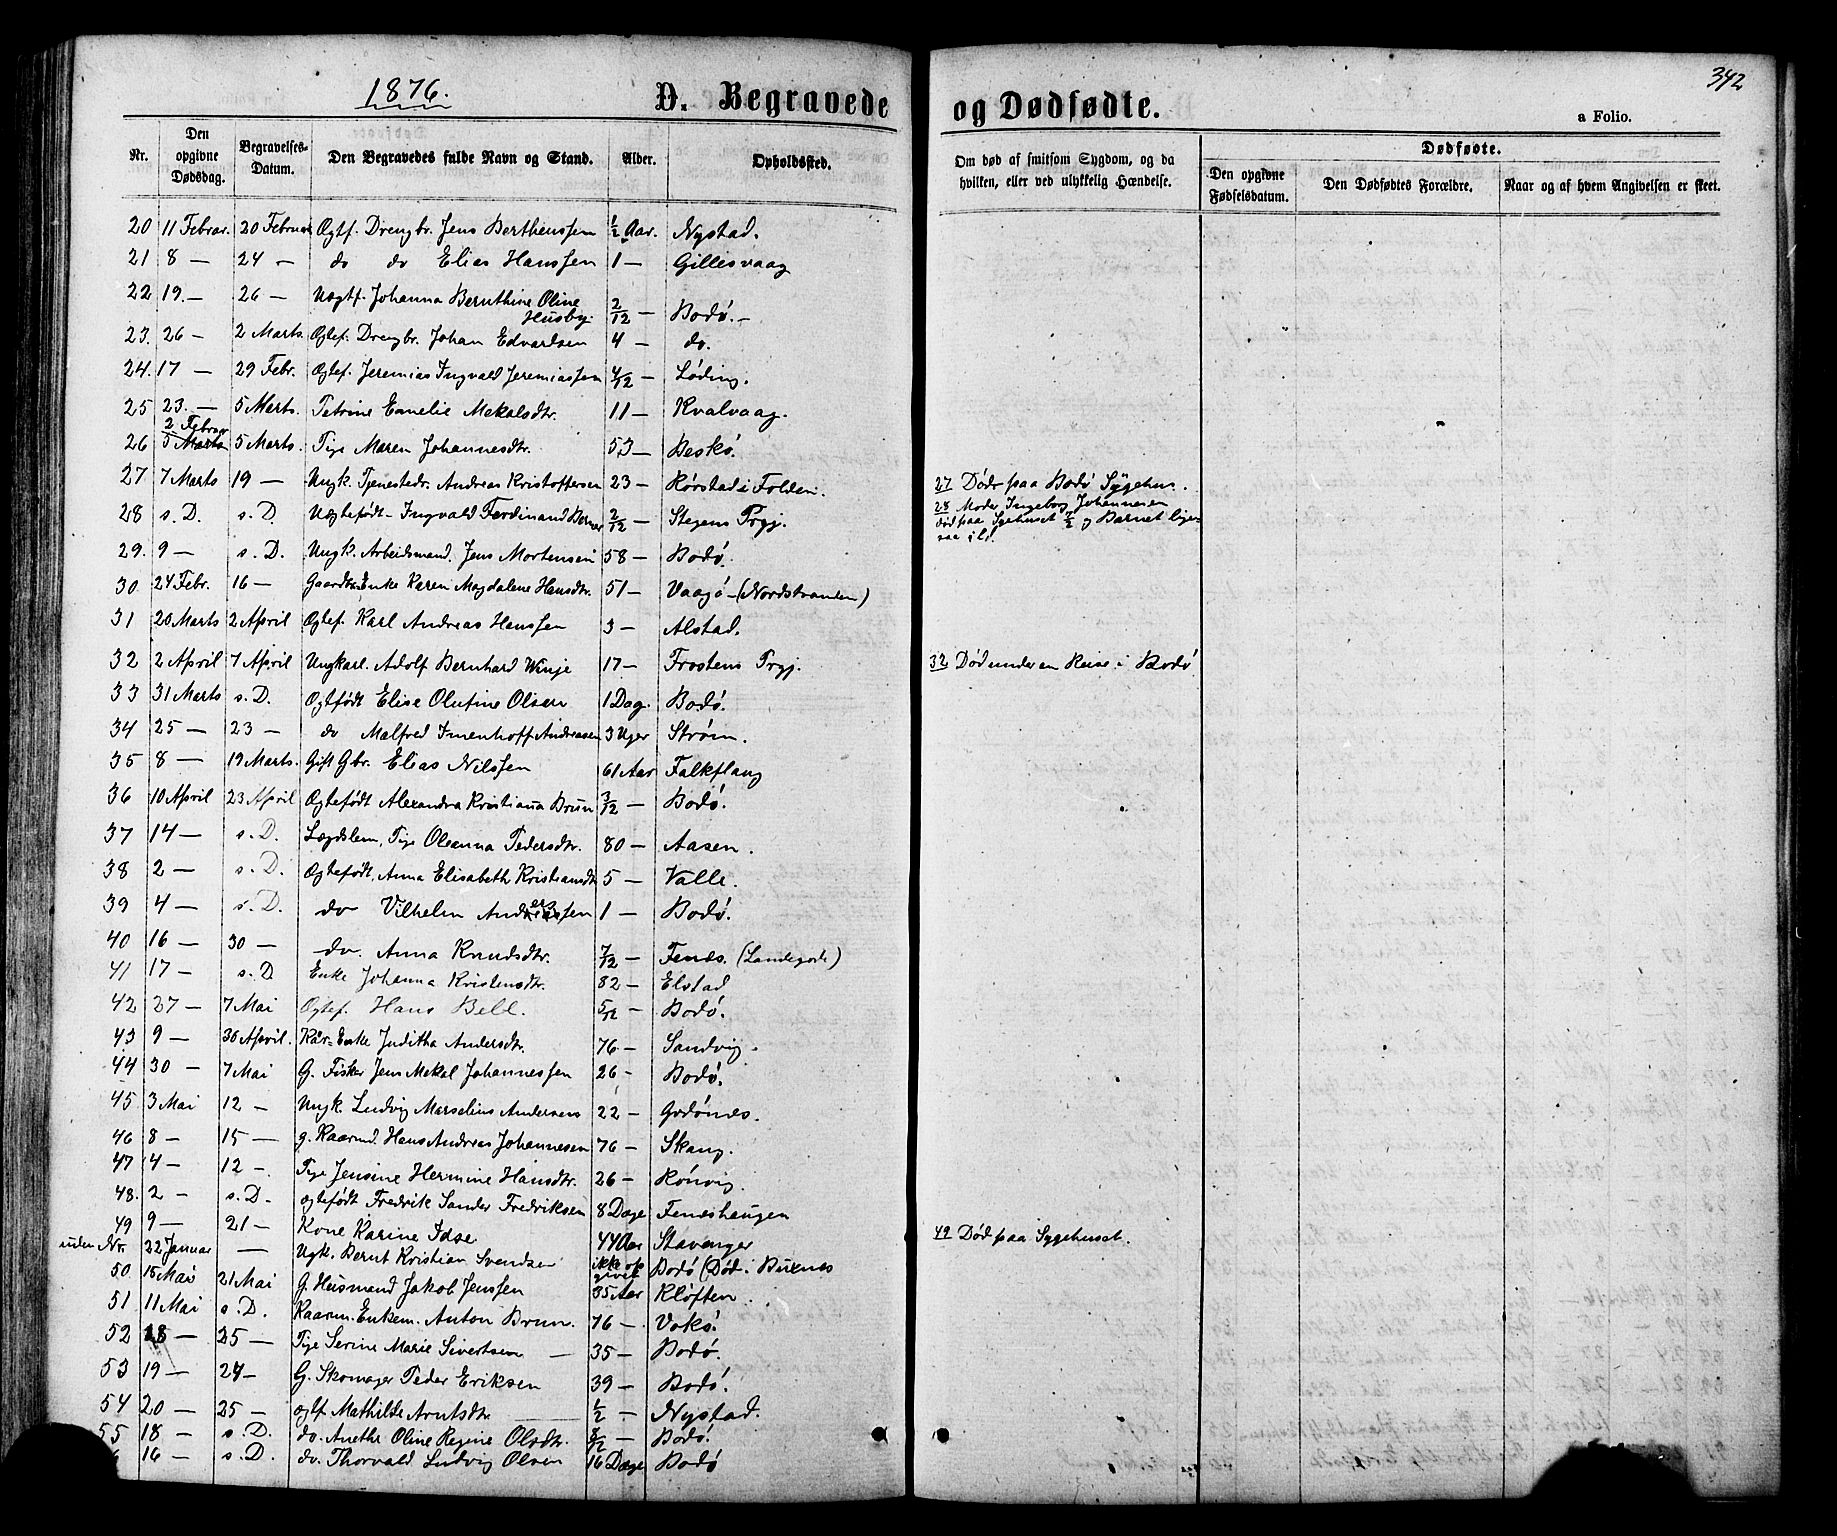 1876.
D. Begravede
og Dødfødte.
342
a Folio.
Nr.
Den opgivne Dødsdag.
Begravelses-Datum.
Den Begravedes fulde Navn og Stand.
Alder.
Opholdssted.
Om død af smitsom Sygdom, og da hvilken, eller ved ulykkelig Hændelse.
Dødfødte.
Den opgivne Fødselsdatum.
Den Dødfødtes Forældre.
Naar og af hvem Angivelsen er skeet.
20 11 Febrar. 20 Februar Ogtf. Drengbr. Jens Berthenssen 1/2 Aar. Nystad.
21 8 — 24 — do do Elias Hanssen 1 — Gillesvaag
22 19. — 26 — Uegtf. Johanna Bernthine Oline Husby. 2/12 — Bodø. —
23. 26 — 2 Marts. Ogtef. Drengbr. Johan Edvartsen 4 — do.
24. 17 — 29 Febr. Ogtef. Jeremias Ingvald Jeremiassen 4/12 — Løding.
25 23. — 5 Marts. Petrine Emelie Mekalsdtr. 11 — Kvalvaag.
26 2 Februar 5 Marts. Pige Maren Johannesdtr. 53 — Beskø.
27 7 Marts 19 — Ungk. Tjenestedr. Andreas Kristoffersen 23 — Rørstad i Folden.
27 Død paa Bodø Sygehus.
28 s. D. s. D. Uegtefødt Ingvald Ferdinand Berner 2/12 — Stegens Prgj.
28 Moder Ingeborg Johannesen død paa Sygehuset 7/2 og Barnet lige-saa
29. 9 — s. D. Ungk. Arbeidsmand. Jens Mortensen 58 — Bodø.
30 24 Febr. 16 — Enke Karen Magdalene Hansdtr. 51 — Vaagø — (Nordstranden)
31 20 Marts 2 April Ogtef. Karl Andreas Hanssen 3 — Alstad.
32 2 April 7 April Ungkarl. Adolf Bernhard Winje 17 — Frostens Prgj.
32 Død under en Reise i Bodø
33 31 Marts s. D. Ogtfødt Elise Olufine Olsen 1 Dag. Bodø.
34 25 — 23 — do Malfred Imenhoff Andreasen 3 Uger Strøm.
35 8 — 19 Marts. Gift Gbr. Elias Nilssen 61 Aar Falkflaug
36 10 April 23 April Ogtefødt Alexandra Kristiana Brun 3/12 — Bodø.
37 14 — s. D. Lægdslem, Pige Oleanna Pedersdtr. 80 — Aasen.
38 2 — s. D. Ogtefødt, Anna Elisabeth Kristiansdtr 5 — Valle.
39 4 — s. D. do Vilhelm Andersen 1 — Bodø.
40 16 — 30 — do. Anna Knudsdtr. 7/12 — Fenes. (Landegode)
41 17 — s. D Enke Johanna Kristensdtr. 82 — Elstad
42 27 — 7 Mai Ogtef. Hans Bell. 5/12 — Bodø.
43 9 — 30 April. Kår-Enke Juditha Andersdtr. 76 — Sandvig.
44 30 — 7 Mai G. Fisker Jens Mekal Johannessen 26 — Bodø.
45 3 Mai 12 — Ungk. Ludvig Marselius Andersens 22 — Godønes.
46 8 — 15 — g. Kaarmd. Hans Andreas Johannesen 76 — Skaug.
47 4 — 12 — Pige Jensine Hermine Hansdtr. 26 — Rønvig.
48. 2 — s. D. ogtefødt Fredrik Sander Fredriksen 8 Dage Feneshaugen
49 9 — 21 — Kone Karine Idsø 44 Aar Stavanger
49 Død paa Sygehuset.
uden Nr. 22 Januar — Ugk. Bernt Kristian Svendsen ikke opgivet Bodø (Død i Buxnes
50. 15 Mai 21 Mai G. Husmand Jakob Jenssen 35 Aar Kløften.
51 11 Mai s. D. Kaarm. Enkem. Anton Brun. 76 — Vokø.
52 18 — 25 — Pige Serine Marie Sivertsen — 35 — Bodø.
53 19 — 24 — G. Skomager Peder Eriksen 39 — Bodø.
54 20 — 25 — ogtf Mathilde Arntsdtr. 1/2 — Nystad.
55 18 — s. D. do. Anethe Oline Regine Olsdtr. 8/12 — Bodø.
16 — s. D. do. Thorvald Ludvig Olsen 16 Dage Bodø